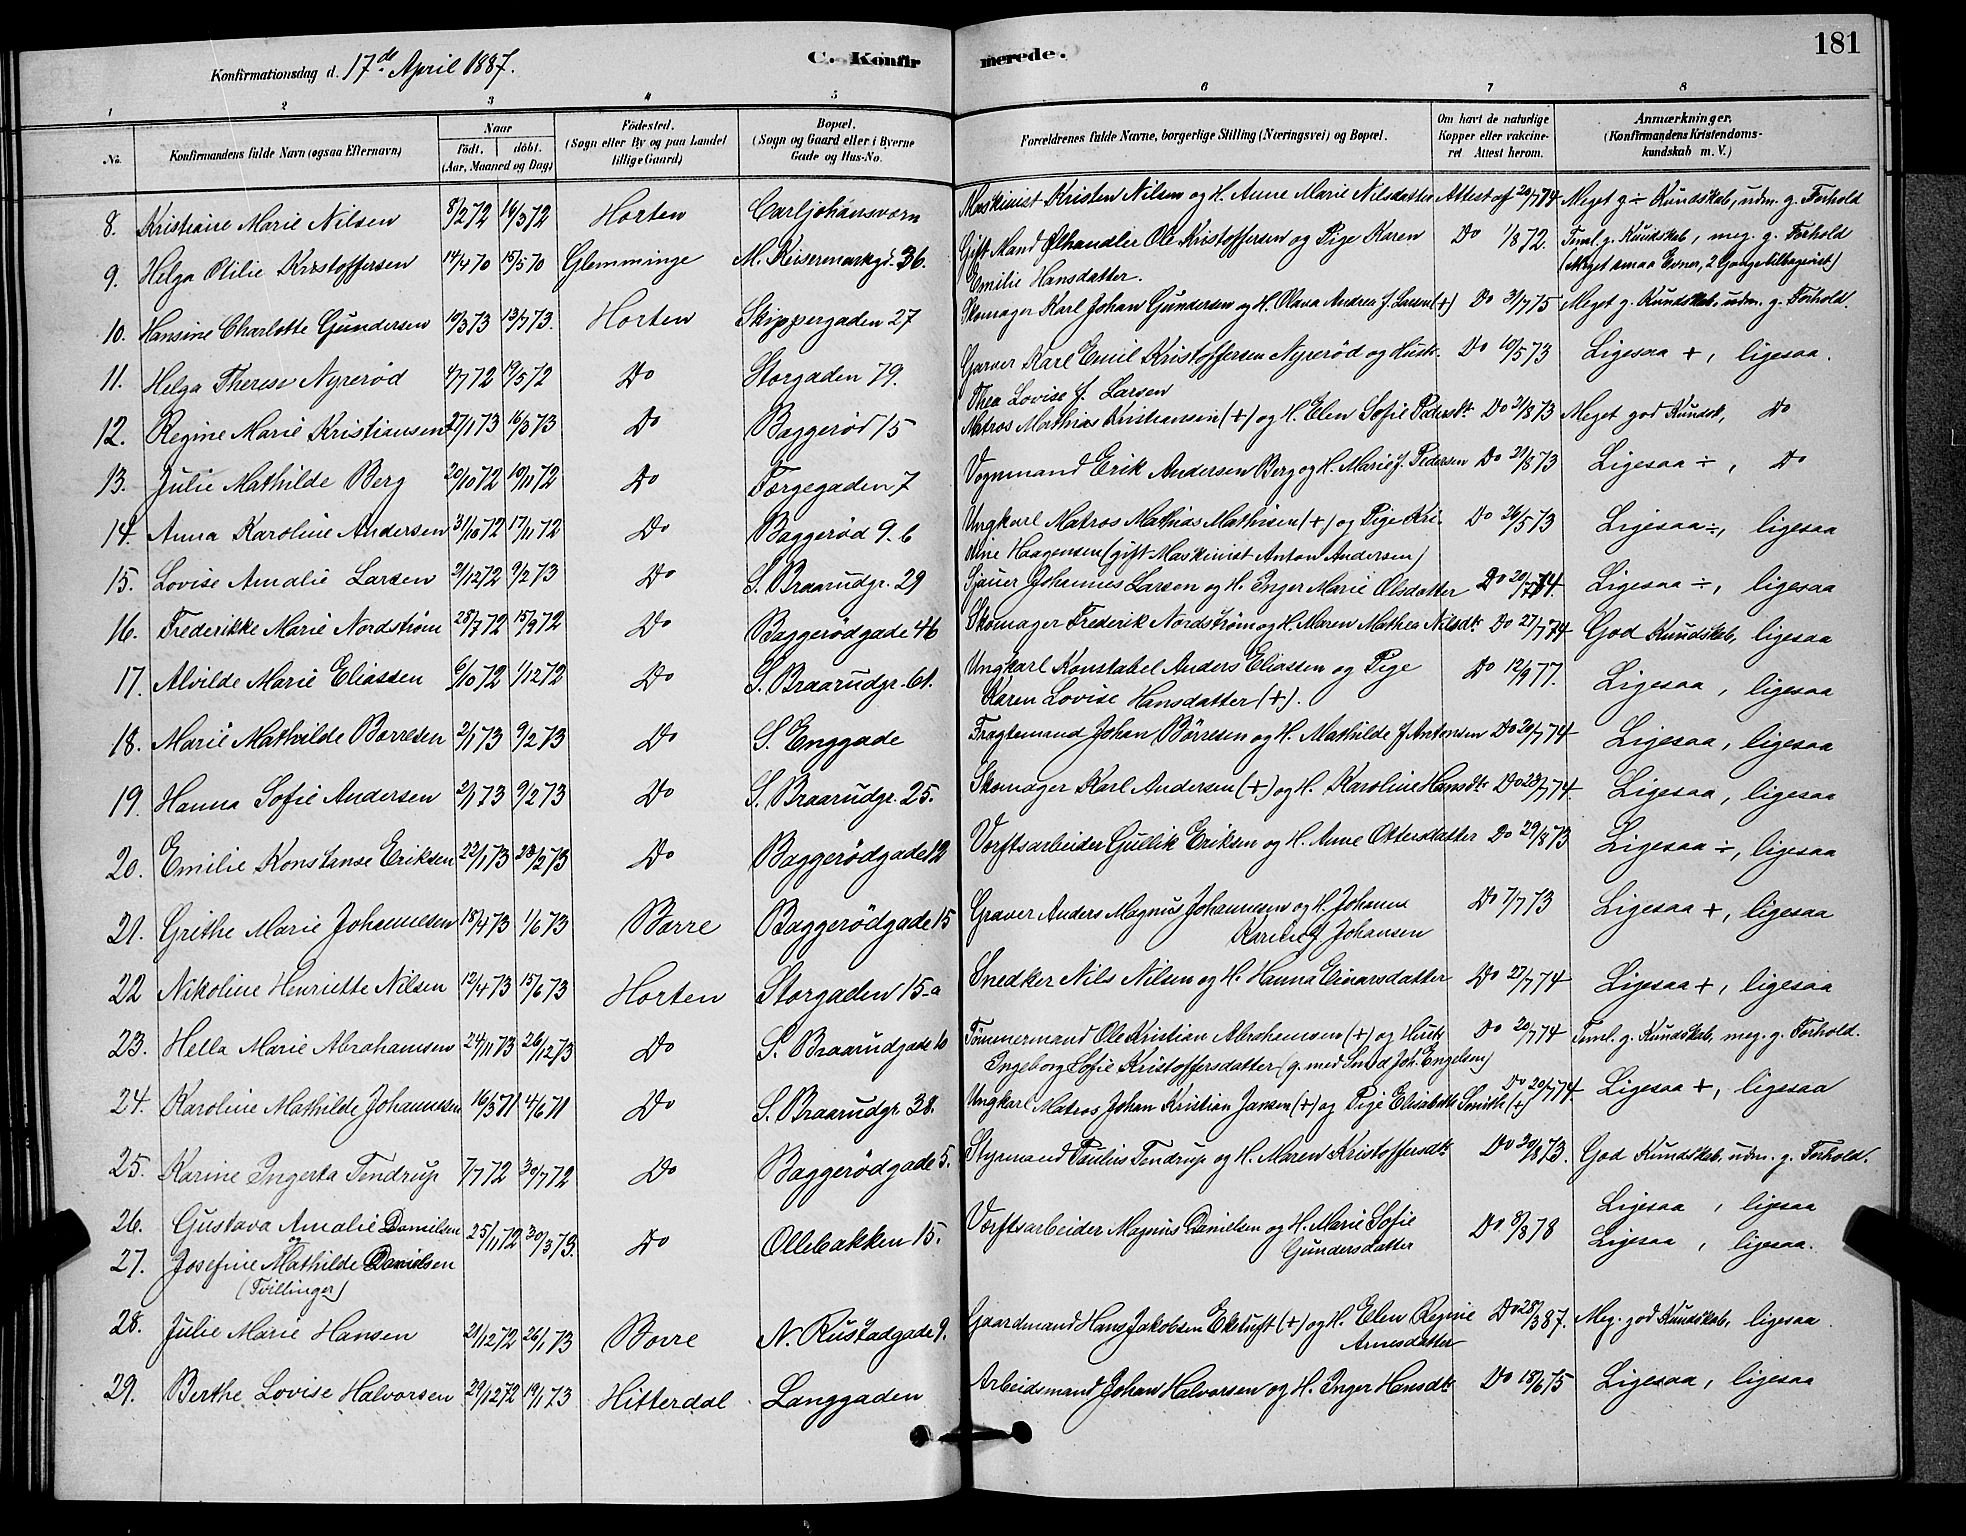 181
Konfirmationsdag d. 17de April 1887. C. Konfirmerede.
1 2 3 4 5 6 7 8
No. Konfirmandens fulde Navn (ogsaa Efternavn) Naar født. døbt. (Aar, Maaned og Dag) Fødested. (Sogn eller By og paa Landet tillige Gaard) Bopæl. (Sogn og Gaard eller i Byerne Gade og Hus-No. Forældrenes fulde Navne, borgerlige Stilling (Næringsvei) og Bopæl. Om havt de naturlige Kopper eller vakcineret Attest herom. Anmærkninger. (Konfirmandens Kristendomskundskab m. V.)
8. Kristiane Marie Nilsen 8/2 72 16/3 72 Horten Carljohansværn Maskinist Kristen Nilsen og H. Anne Marie Nilsdatter Attest af 20/7 74 Meget g ÷ Kundskab, udm. g. Forhold
9. Helga Otilie Kristoffersen 14/4 70 15/5 70 Glemminge M. Keisermarkgd. 36. Gift Mand Ølhandler Ole Kristoffersen og Pige Karen Do 1/8 72. Teml. g. Kundskab, meg. g. Forhold
Emilie Hansdatter. (Meget smaa Evner, 2 Gange tilbagevist)
10. Hansine Charlotte Gundersen 19/3 73 13/7 73. Horten Skippergaden 27 Skomager Karl Johan Gundersen og H. Olava Andrea f. Larsen (+) Do 31/7 75 Meget g. Kundskab, udm. g. Forhold
11. Helga Therese Nyrerød 4/7 72 19/5 72 Do Storgaden 79. Garver Karl Emil Kristoffersen Nyrerød og Hust. Do 10/5 73 Ligesaa +, ligesaa.
Thea Lovise f. Larsen
12. Regine Marie Kristiansen 27/1 73 16/3 73 Do Baggerød 15 Matros Mathias Kristiansen (+) og H. Elen Sofie Pedersdt. Do 21/8 73 Meget god Kundsk, Do
13. Julie Mathilde Berg 20/10 72 10/11 72 Do Torgegaden 7 Vognmand Erik Andersen Berg og H. Marie f. Pedersen Do 21/8 73 Ligesaa ÷, Do
14. Anna Karoline Andersen 31/10 72 17/11 72 Do Baggerød 9.b Ungkarl Matros Mathias Mathisen (+) og Pige Kri- Do 26/5 73 Ligesaa ÷, ligesaa
stine Haagensen (gift Maskinist Anton Andersen)
15. Lovise Amalie Larsen 2/12 72 9/2 73 Do S. Braarudgr. 29 Sjauer Johannes Larsen og H. Inger Marie Olsdatter Do 20/7 74 Ligesaa ÷, ligesaa
16. Frederikke Marie Nordstrøm 28/7 72 15/9 72 Do Baggerødgade 46 Skomager Frederik Nordstrøm og H. Maren Mathea Nilsdt. Do 27/7 74 God Kundskab, ligesaa
17. Alvilde Marie Eliassen 6/10 72 1/12 72 Do S. Braarudgr. 61. Ungkarl Konstabel Anders Eliassen og Pige Do 12/9 77. Ligesaa, ligesaa
Karen Lovise Hansdatter (+).
18. Marie Mathilde Børresen 2/1 73 9/2 73 Do S. Enggade Fragtemand Johan Børresen og H. Mathilde f. Antonsen Do 20/7 74 Ligesaa, ligesaa
19. Hanna Sofie Andersen 2/1 73 9/2 73 Do S. Braarudgr. 25. Skomager Karl Andersen (+) og H. Karoline Hansdt. Do 23/7 74. Ligesaa, ligesaa
20. Emilie Konstanse Eriksen 22/1 73 23/2 73 Do Baggerødgade 12 Værftsarbeider Gullik Eriksen og H. Anne Ottersdatter Do 29/8 73 Ligesaa ÷, ligesaa
21. Grethe Marie Johannesen 18/4 73 1/6 73 Borre Baggerødgade 15 Graver Anders Magnus Johannesen og H. Johanne Do 7/7 73 Ligesaa +, ligesaa
Karine f. Johansen
22 Nikoline Henriette Nilsen 12/4 73 15/6 73 Horten Storgaden 15-a Snedker Nils Nilsen og H. Hanna Einarsdatter Do 27/7 74 Ligesaa +, ligesaa
23. Hella Marie Abrahamsen 24/11 73 26/12 73 Do S. Braarudgade 10 Tømmermand Ole Kristian Abrahamsen (+) og Hust. Do 20/7 74 Teml. g. Kundskab, meg. g. Forhold.
Ingeborg Sofie Kristoffersdatter (g. med Smed Joh. Engelsen)
24. Karoline Mathilde Johannesen 16/3 71 4/6 71 Do S. Braarudgr 38. Ungkarl Matros Johan Kristian Jansen (+) og Pige Elisabeth Smith (+) Do 20/7 74 Ligesaa +, ligesaa
25. Karine Ingerta Tendrup 7/7 72 30/7 72 Do Baggerødgade 5. Styrmand Paulus Tendrup og H. Maren Kristoffersdt. Do 30/8 73. God Kundskab, udm. g. Forhold.
26. Gustava Amalie Danielsen Ligesaa, ligesaa
og 25/11 72 30/3 73. Do Ollebakken 15. Værftsarbeider Magnus Danielsen og H. Marie Sofie Gundersdatter Do 8/8 78
27. Josefine Mathilde Danielsen Ligesaa, ligesaa.
(Tvillinger)
28. Julie Marie Hansen 21/12 72 26/1 73 Borre N. Rustadgade 9. Gaardmand Hans Jakobsen Eketuft (+) og H. Elen Regine Do 28/3 87. Meg. god Kundskab, ligesaa.
Arnesdatter
29. Berthe Lovise Halvorsen 29/12 72 19/1 73 Hitterdal Langgaden Arbeidsmand Johan Halvorsen og H. Inger Hansdt. Do 18/6 75 Ligesaa, ligesaa